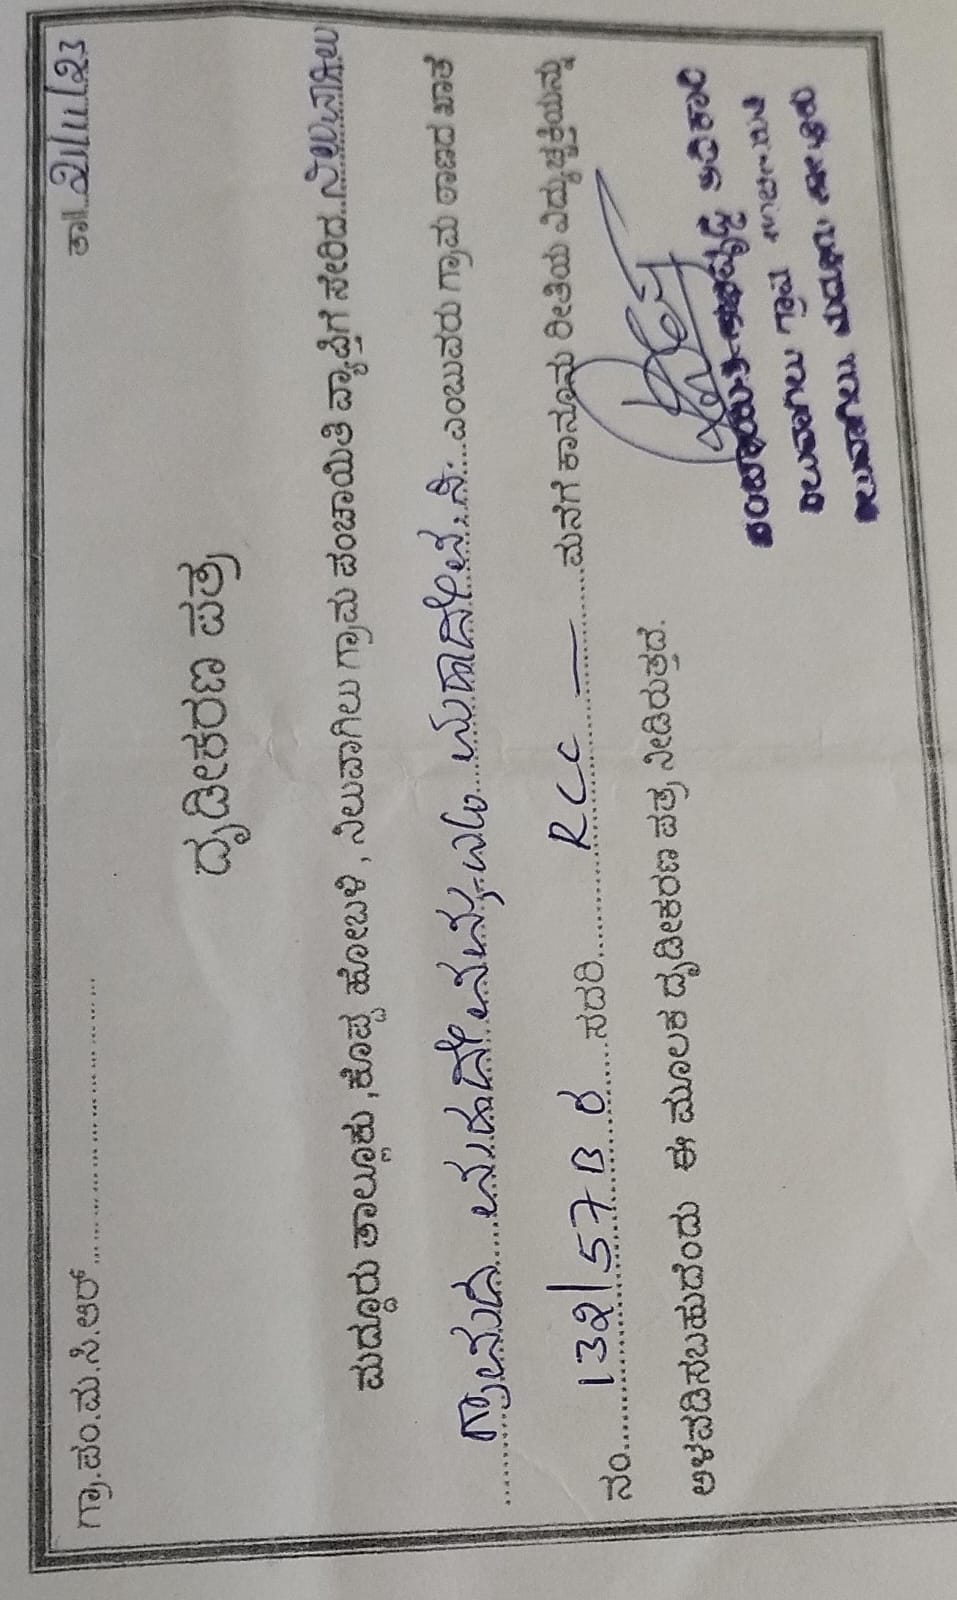 ಗ್ರಾ.ಪಂ.ಮ.ಸಿ.ಆರ್.............................. ತಾ॥
ದೃಡೀಕರಣ ಪತ್ರ
ಮದ್ದೂರು ತಾಲ್ಲೂಕು ,ಕೊಪ್ಪ ಹೋಬಳಿ , ನಿಲುವಾಗಿಲು ಗ್ರಾಮ ಪಂಚಾಯಿತಿ ವ್ಯಾಪ್ತಿಗೆ ಸೇರಿದ..ನಿಲುವಾಗಿಲು
ಗ್ರಾಮದ....ಮಹದೇವಮ್ಮ ಮಹಾದೇವ...ಎಂಬುವರು ಗ್ರಾಮ ಠಾಣದ ಖಾತೆ
ನಂ.....132/57B ರ....ಸದರಿ.......RCC —......ಮನೆಗೆ ಕಾನೂನು ರೀತಿಯ ವಿದ್ಯುಚ್ಛಕ್ತಿಯನ್ನು
ಅಳವಡಿಸಬಹುದೆಂದು ಈ ಮೂಲಕ ದೃಡೀಕರಣ ಪತ್ರ ನೀಡಿರುತ್ತದೆ.
ಪಂಚಾಯಿತಿ ಅಭಿವೃದ್ಧಿ ಅಧಿಕಾರಿ
ನಿಲುವಾಗಿಲು ಗ್ರಾಮ ಪಂಚಾಯಿತಿ
ನಿಲುವಾಗಿಲು ಮದ್ದೂರು ತಾಲ್ಲೂಕು